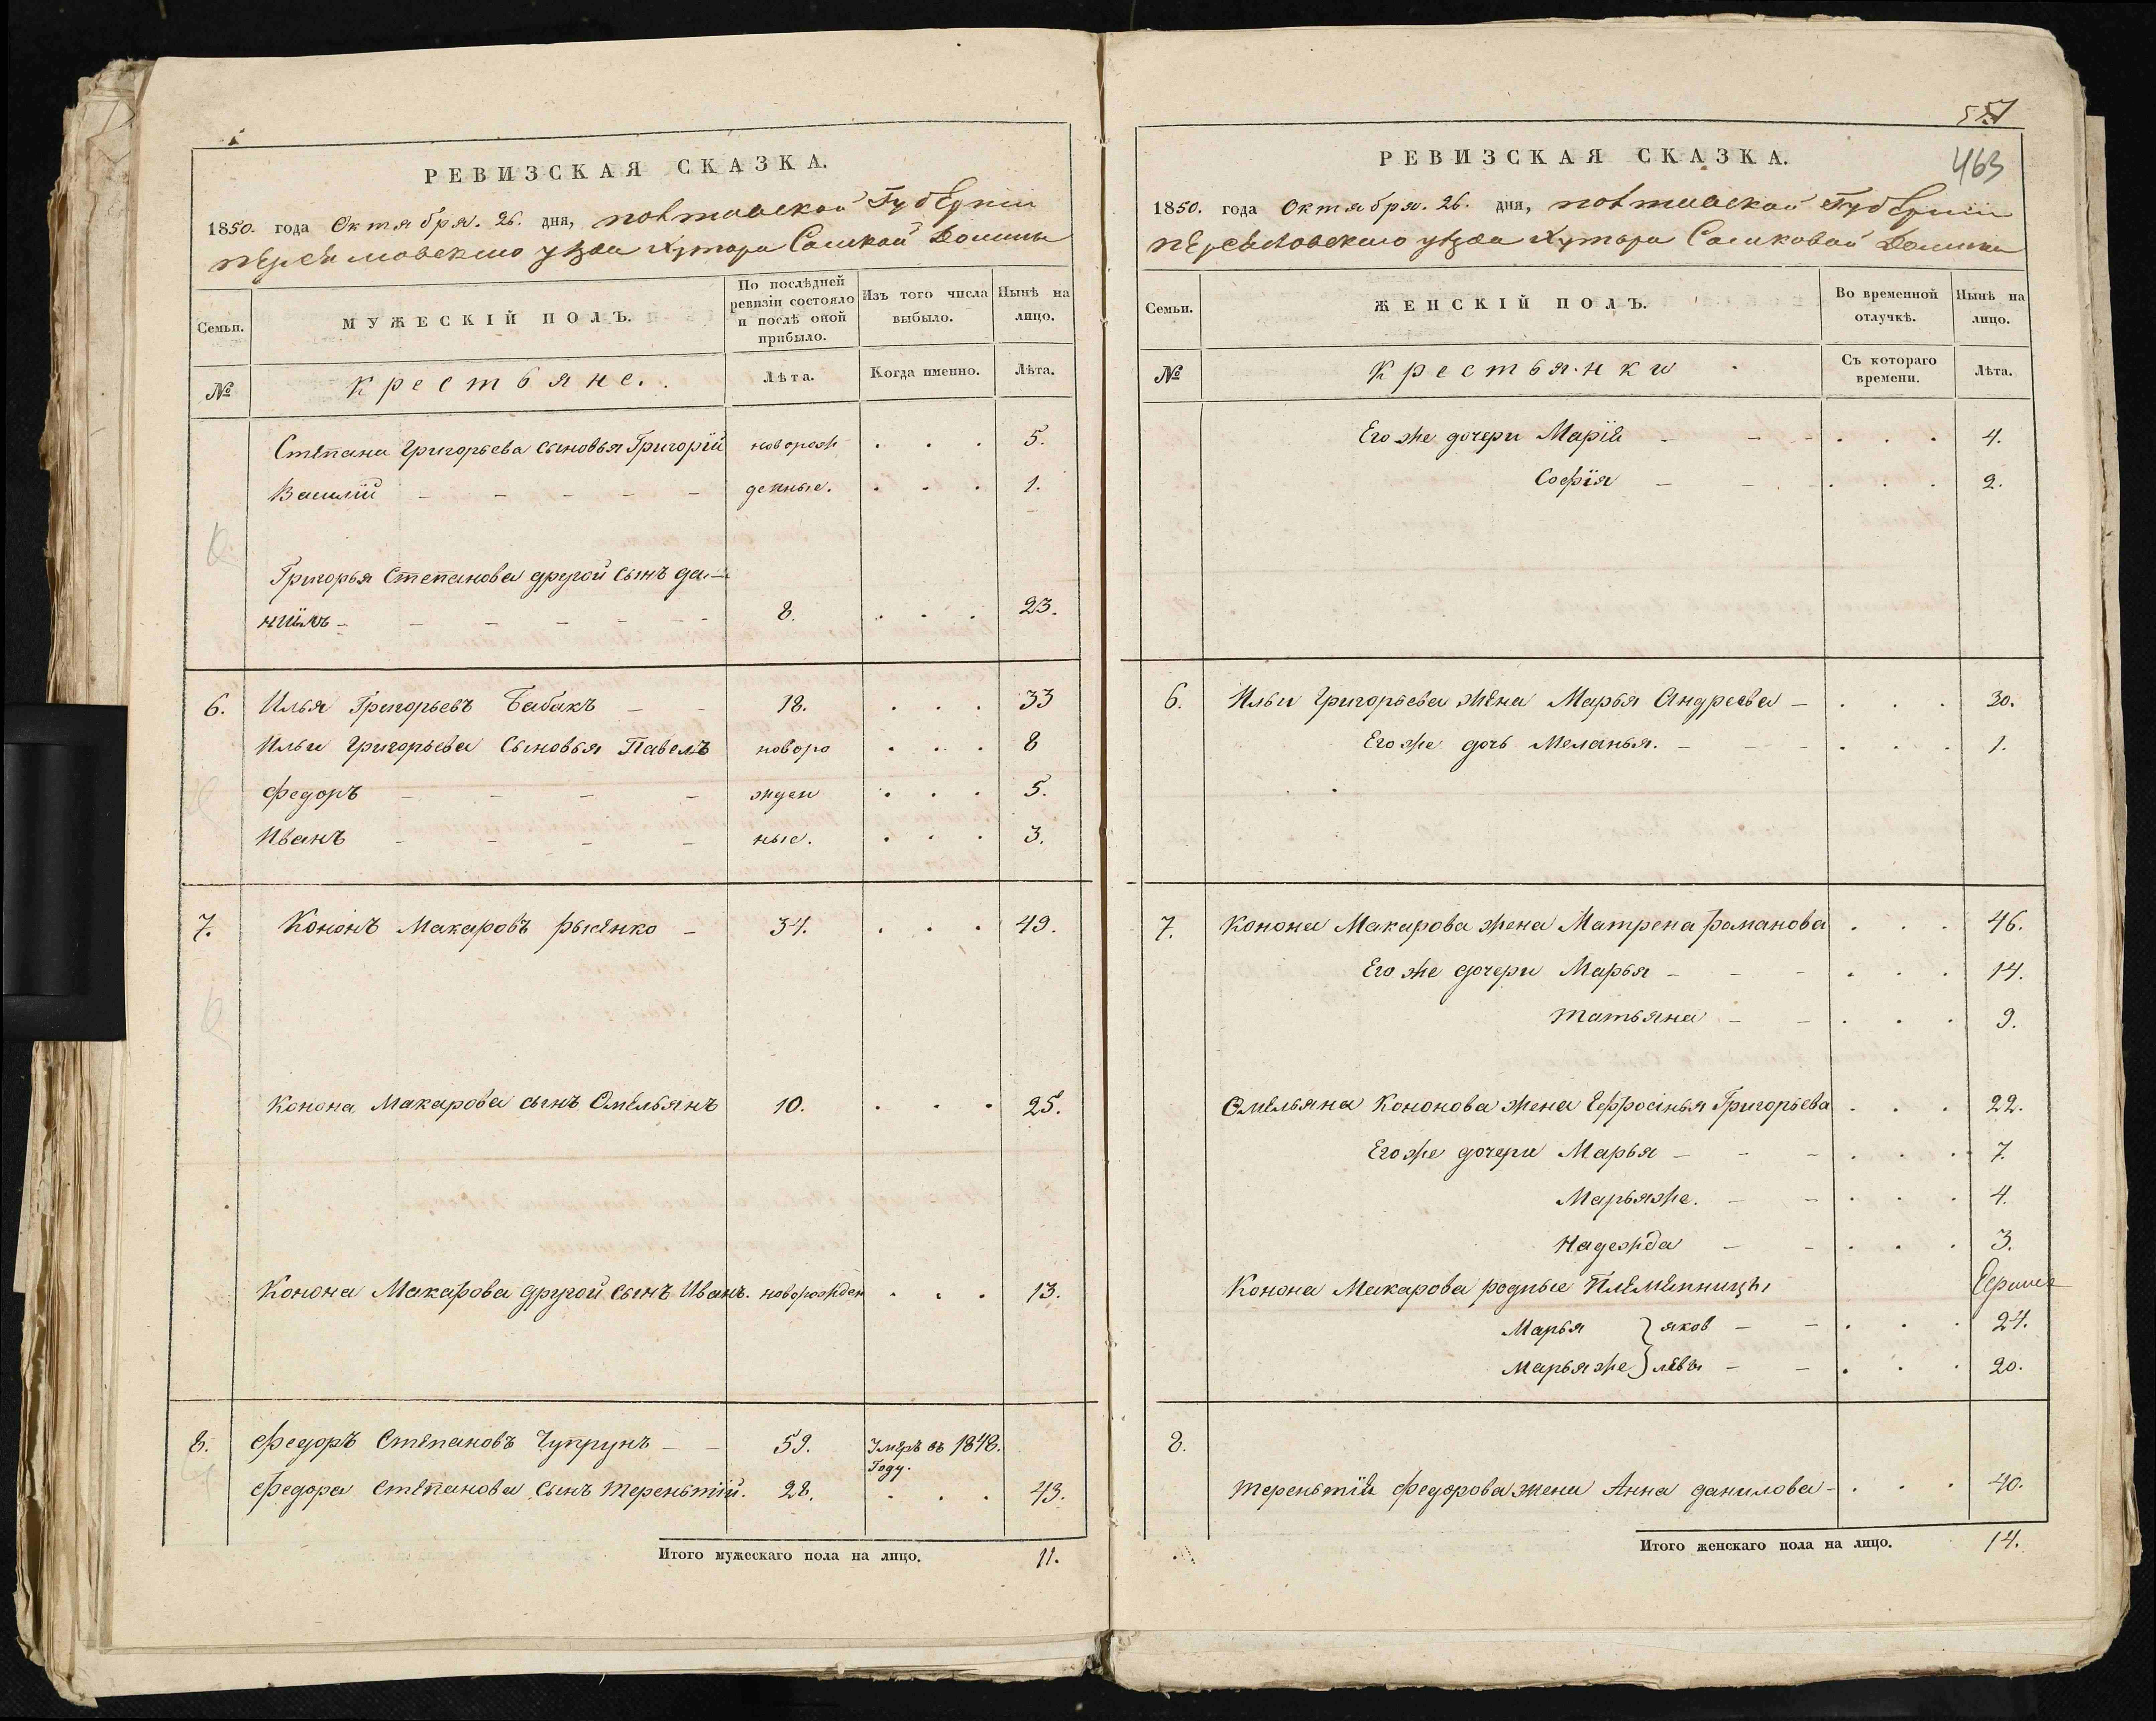 РЕВИЗСКАЯ СКАЗКА.
1850. года Октября. 26. дня, полтавской Губернии
уѣзда Хутора Долины
Семьи. МУЖЕСКІЙ ПОЛЪ. По послѣдней ревизіи состояло и послѣ оной прибыло. Изъ того числа выбыло. Нынѣ на лицо.
№ Крестьяне. Лѣта. Когда именно. Лѣта.
Степана Григорьева сыновья Григорій новорож . . . 5.
Василій – – – – – денные. . . . 1.
Григорья Степанова другой сынъ да-
ніилъ – – – – – – 8. . . . 23.
6. Илья Григорьевъ Бабакъ – – 18. . . . 33
Ильи Григорьева Сыновья Павелъ новоро . . . 8
Федоръ – – – – жден . . . 5.
Иванъ – – – – ные. . . . 3.
7. Кононъ Макаровъ – 34. . . . 49.
Конона Макарова сынъ Омельянъ 10. . . . 25.
Конона Макарова другой сынъ Иванъ. новорожден . . . 13.
8. Федоръ Степановъ Чупрунъ – – 59. Умеръ въ 1848.
Году.
Федора Степанова сынъ Тереньтій. 28. . . . 43.
Итого мужескаго пола на лицо. 11.
557
463
РЕВИЗСКАЯ СКАЗКА.
1850. года Октября. 26. дня, полтавской Губернии
уѣзда Хутора Долины
Семьи. ЖЕНСКІЙ ПОЛЪ. Во временной отлучкѣ. Нынѣ на лицо.
№ Крестьянки Съ котораго времени. Лѣта.
Его же дочери Марія – – – . . . 4.
Софія – – – . . . 2.
6. Ильи Григорьева жена Марья Андреева – . . . 30.
Его же дочь Меланья. – – – . . . 1.
7. Конона Макарова жена Матрена романова . . . 46.
Его же дочери Марья – – – . . . 14.
татьяна – – . . . 9.
Омельяна Кононова жена Ефросінья Григорьева . . . 22.
Его же дочери Марья – – – . . . 7.
Марья же. – – . . . 4.
Надежда – – . . . 3.
Конона Макарова родные племянницы
Марья } яков – – . . . 24.
Марья же } левы – – . . . 20.
8.
Тереньтія Федорова жена Анна данилова – . . . 40.
Итого женскаго пола на лицо. 14.